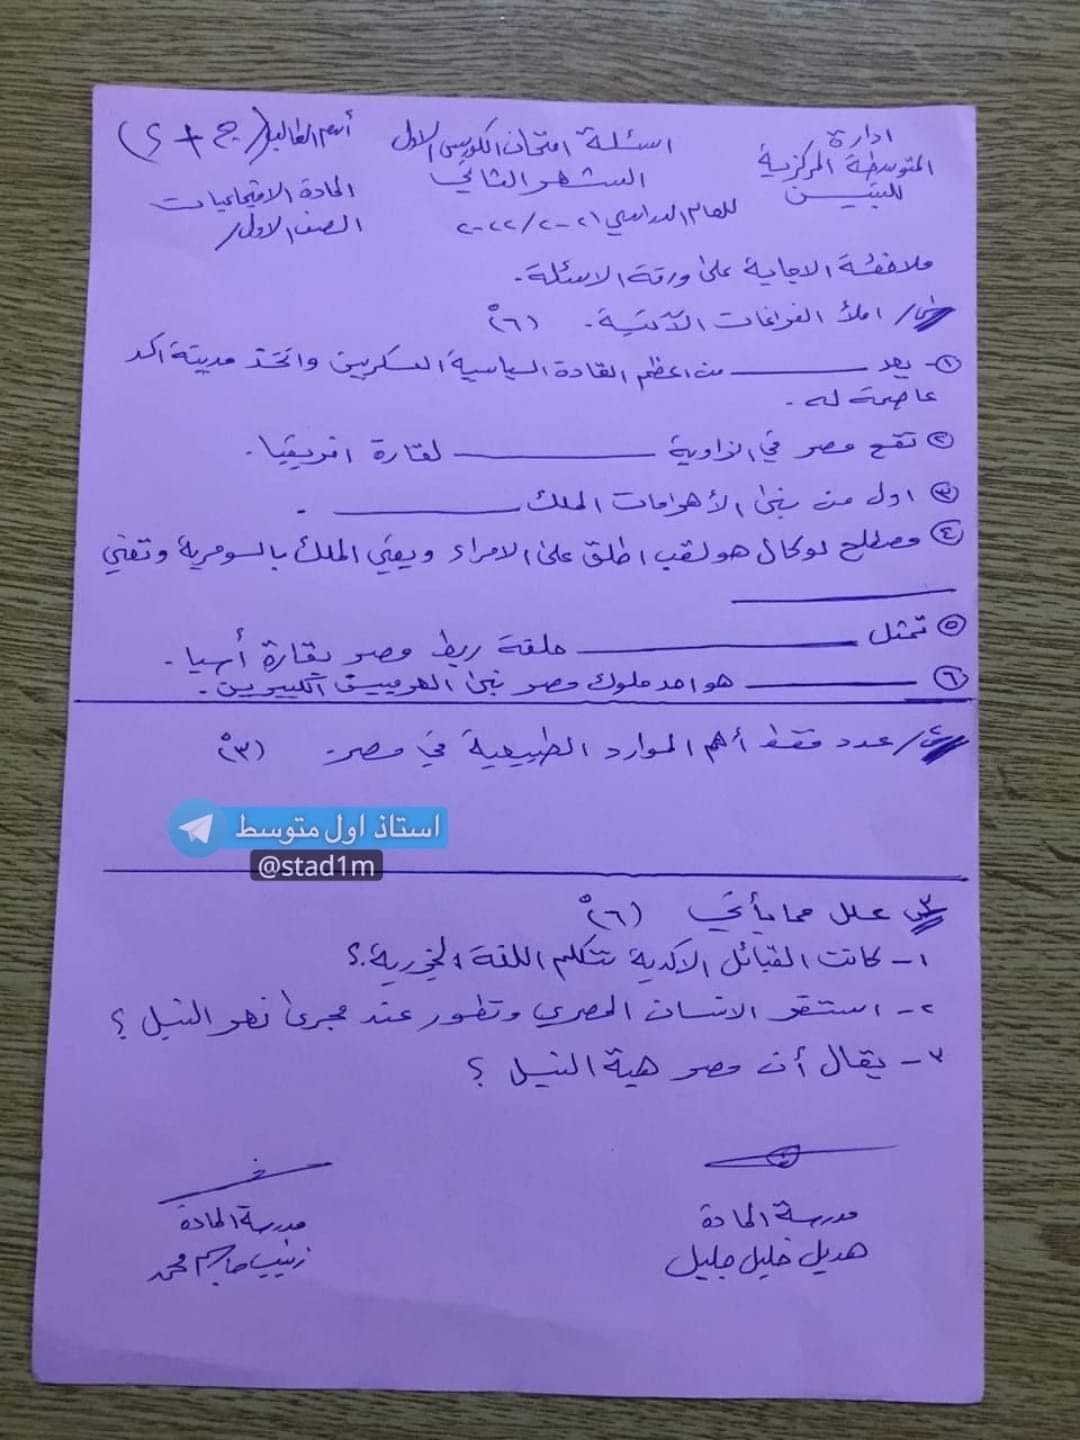 ادارة
المتوسطة المركزية
للبنين
اسئلة امتحان الكورس الاول
الشهر الثاني
للعام الدراسي ٢٠٢١/٢٠٢٢
اسم الطالب (ج + د)
المادة الاجتماعيات
الصف الاول/
ملاحظة الاجابة على ورقة الاسئلة.
س١/ املأ الفراغات الآتية. (٦د)
١- يعد ــــــ من اعظم القادة السياسية العسكريين واتخذ مدينة اكد
عاصمة له.
٢ تقع مصر في الزاوية ــــــ لقارة افريقيا.
٣ اول من بنى الأهرامات الملك ــــــ.
٤ مصطلح لوكال هو لقب اطلق على الامراء ويعني الملك بالسومرية وتعني
ــــــ
٥ تمثل ــــــ حلقة ربط مصر بقارة أسيا.
٦ ــــــ هو احد ملوك مصر بنى الهرميين الكبيرين.
س٢/ عدد فقط أهم الموارد الطبيعية في مصر. (٣د)
استاذ اول متوسط
@stad1m
س٣ علل مما يأتي (٦د)
١- كانت القبائل الاكدية تتكلم اللغة الجزرية؟
٢- استقر الانسان المصري وتطور عند مجرى نهر النيل؟
٣- يقال أن مصر هبة النيل؟
مدرسة المادة
هديل خليل جليل
مدرسة المادة
زينب جاسم محمد